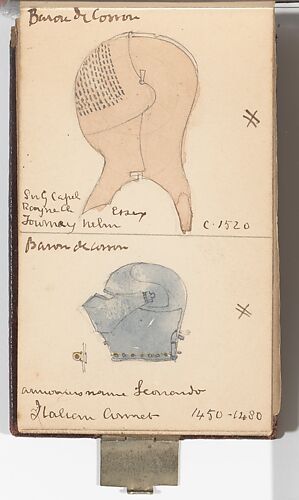 Baron de Cosson
Sir G Capel
Rayne Ch Essex
Tourney helm
c. 1520
Baron de Cosson
armouriers name Leonardo
Italian Armet 1450-1480